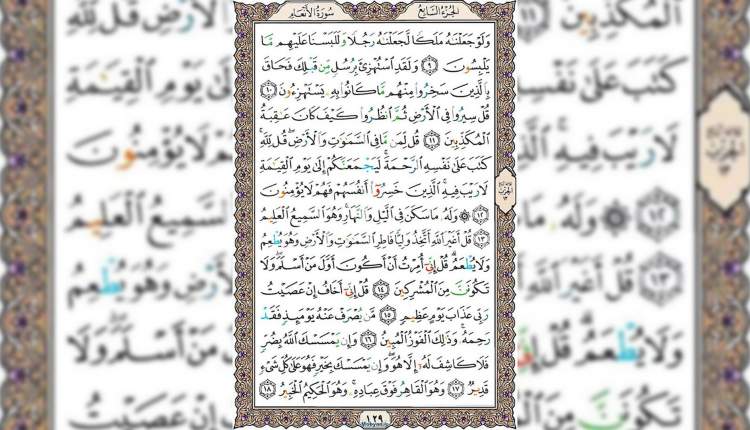 سُورَةُ الأَنْعَامِ
الجُزءُ السَّابِعُ
وَلَوْ جَعَلْنَٰهُ مَلَكًا لَّجَعَلْنَٰهُ رَجُلًا وَلَلَبَسْنَا عَلَيْهِم مَّا
يَلْبِسُونَ ۝٩ وَلَقَدِ ٱسْتُهْزِئَ بِرُسُلٍ مِّن قَبْلِكَ فَحَاقَ
بِٱلَّذِينَ سَخِرُوا۟ مِنْهُم مَّا كَانُوا۟ بِهِۦ يَسْتَهْزِءُونَ ۝١٠
قُلْ سِيرُوا۟ فِى ٱلْأَرْضِ ثُمَّ ٱنظُرُوا۟ كَيْفَ كَانَ عَٰقِبَةُ
ٱلْمُكَذِّبِينَ ۝١١ قُل لِّمَن مَّا فِى ٱلسَّمَٰوَٰتِ وَٱلْأَرْضِ ۖ قُل لِّلَّهِ ۚ
كَتَبَ عَلَىٰ نَفْسِهِ ٱلرَّحْمَةَ ۚ لَيَجْمَعَنَّكُمْ إِلَىٰ يَوْمِ ٱلْقِيَٰمَةِ
لَا رَيْبَ فِيهِ ۚ ٱلَّذِينَ خَسِرُوٓا۟ أَنفُسَهُمْ فَهُمْ لَا يُؤْمِنُونَ
۝١٢ ۞ وَلَهُۥ مَا سَكَنَ فِى ٱلَّيْلِ وَٱلنَّهَارِ ۚ وَهُوَ ٱلسَّمِيعُ ٱلْعَلِيمُ
۝١٣ قُلْ أَغَيْرَ ٱللَّهِ أَتَّخِذُ وَلِيًّا فَاطِرِ ٱلسَّمَٰوَٰتِ وَٱلْأَرْضِ وَهُوَ يُطْعِمُ
وَلَا يُطْعَمُ ۗ قُلْ إِنِّىٓ أُمِرْتُ أَنْ أَكُونَ أَوَّلَ مَنْ أَسْلَمَ ۖ وَلَا
تَكُونَنَّ مِنَ ٱلْمُشْرِكِينَ ۝١٤ قُلْ إِنِّىٓ أَخَافُ إِنْ عَصَيْتُ
رَبِّى عَذَابَ يَوْمٍ عَظِيمٍ ۝١٥ مَّن يُصْرَفْ عَنْهُ يَوْمَئِذٍ فَقَدْ
رَحِمَهُۥ ۚ وَذَٰلِكَ ٱلْفَوْزُ ٱلْمُبِينُ ۝١٦ وَإِن يَمْسَسْكَ ٱللَّهُ بِضُرٍّ
فَلَا كَاشِفَ لَهُۥٓ إِلَّا هُوَ ۖ وَإِن يَمْسَسْكَ بِخَيْرٍ فَهُوَ عَلَىٰ كُلِّ شَىْءٍ
قَدِيرٌ ۝١٧ وَهُوَ ٱلْقَاهِرُ فَوْقَ عِبَادِهِۦ ۚ وَهُوَ ٱلْحَكِيمُ ٱلْخَبِيرُ ۝١٨
١٢٩